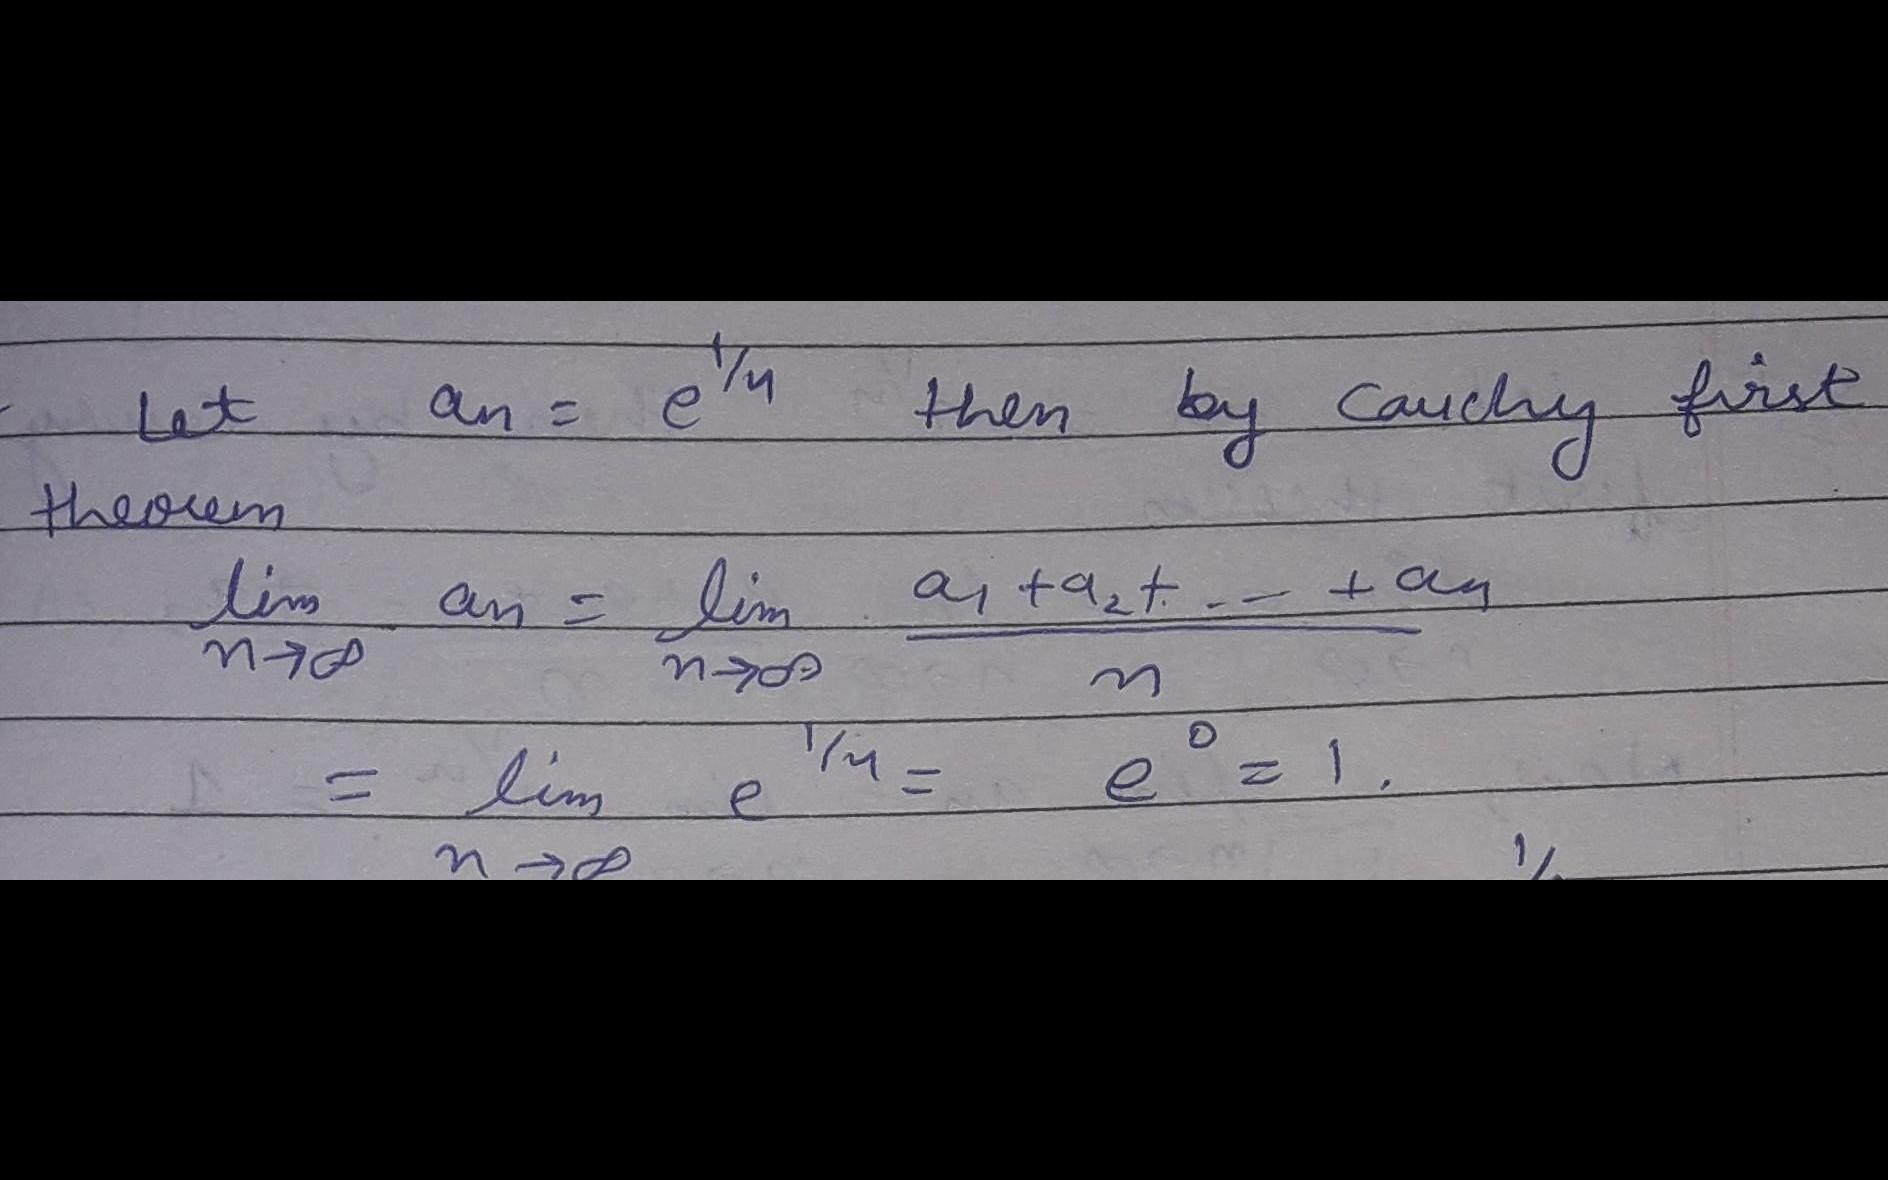 Let an = e^1/n then by Cauchy first
theorem
lim n→∞ an = lim n→∞ a1 + a2 + . . - + an / n
= lim n→∞ e^1/n = e^0 = 1.